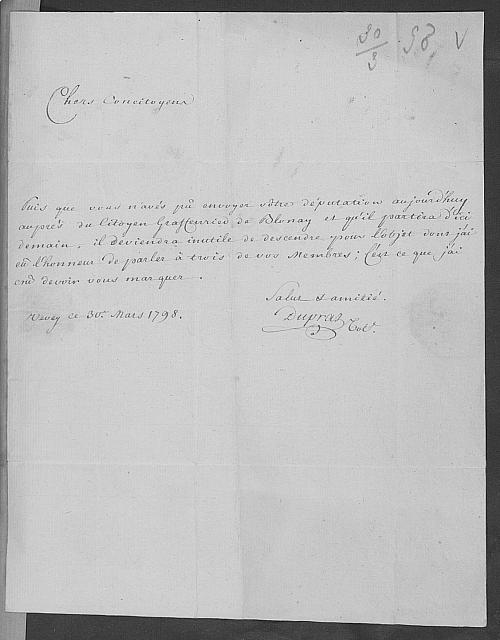 30/3 . 98 V
Chers Concitoyens
Puis que vous n'avés pû envoyer vôtre députation aujourd'huy
auprés du Citoyen Graffenried de Blonay et qu'il partira d'ici
demain, il déviendra inutile de descendre pour l'objet dont j'ai
eû l'honneur de parler à trois de vos Membres; C'est ce que j'ai
crû devoir vous marquer.
Salut & amitié.
Vevey ce 30.e Mars 1798.
Dupraz